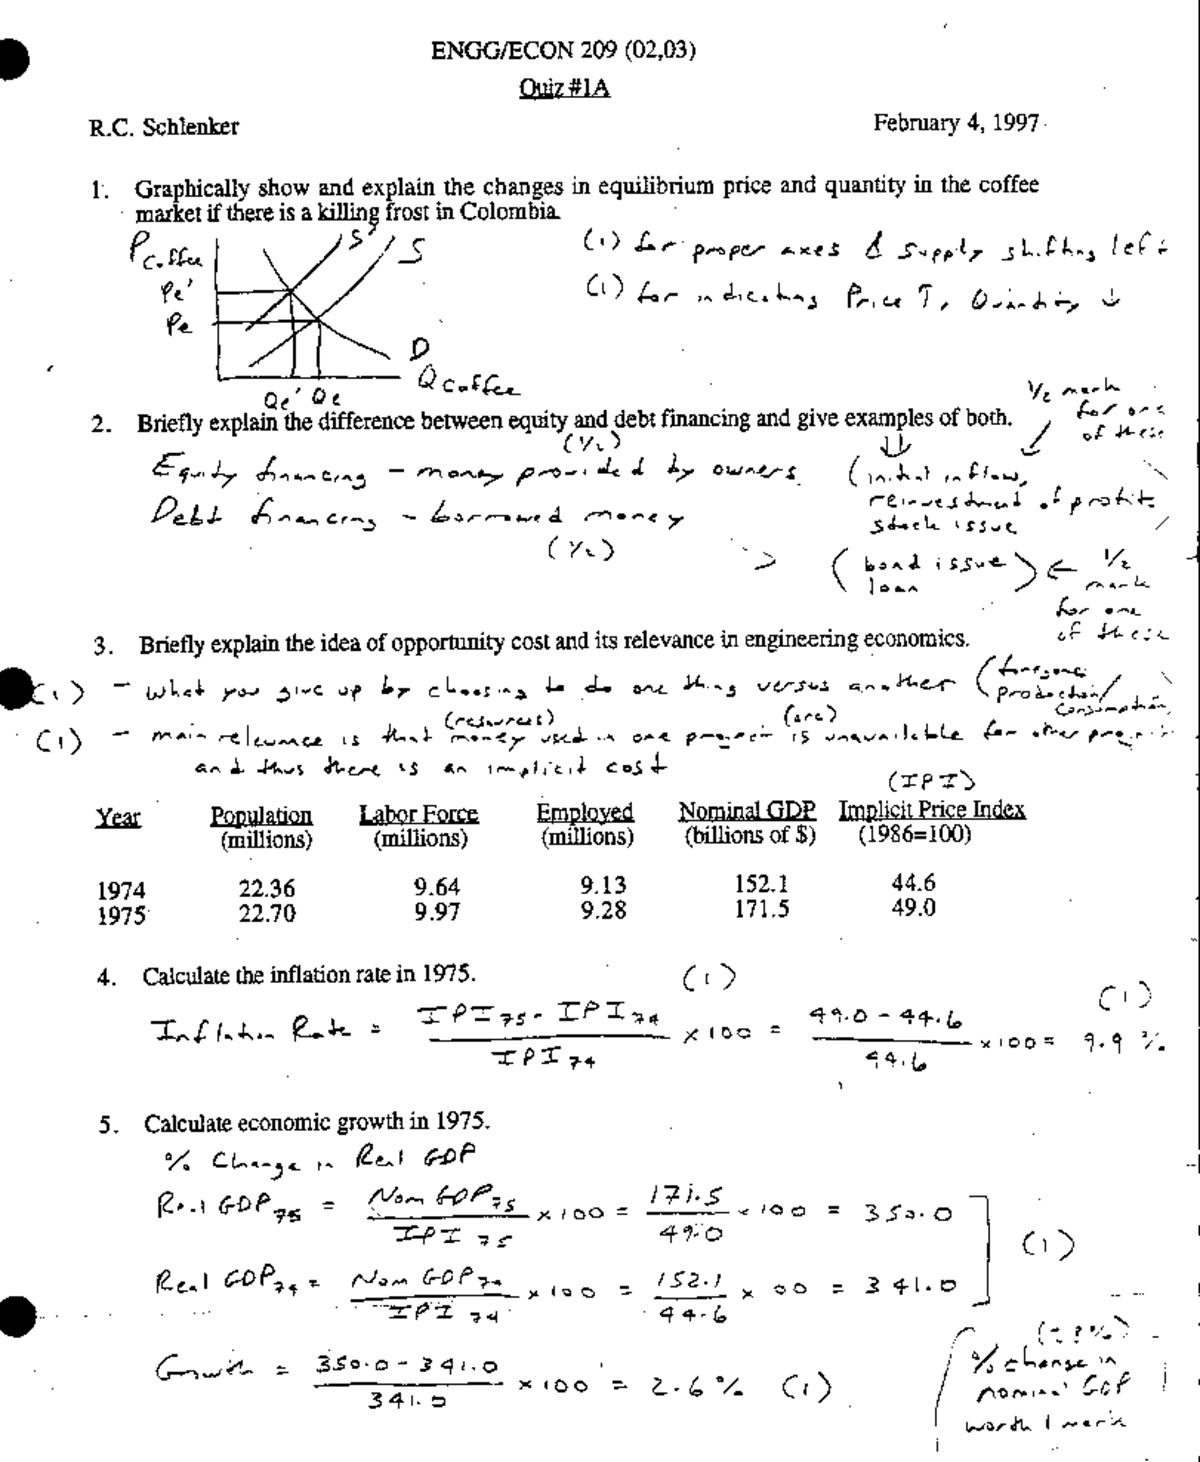 ENGG/ECON 209 (02,03)
Quiz #1A
R.C. Schlenker February 4, 1997
1. Graphically show and explain the changes in equilibrium price and quantity in the coffee
market if there is a killing frost in Colombia.
P coffee S' S
Pe'
Pe
D
Q coffee
Qe' Qe
(1) for proper axes & supply shifting left
(1) for indicating Price ↑, Quantity ↓
2. Briefly explain the difference between equity and debt financing and give examples of both.
1/2 mark
for one
of these
(1/2)
Equity financing - money provided by owners
(initial inflow,
reinvestment of profits
stock issue
Debt financing - borrowed money
(1/2)
(bond issue
loan) ← 1/2
mark
for one
of these
3. Briefly explain the idea of opportunity cost and its relevance in engineering economics.
(1) - what you give up by choosing to do one thing versus another (foregone
production/
consumption
(resources) (are)
(1) - main relevance is that money used in one project is unavailable for other projects
and thus there is an implicit cost
(IPI)
Year Population Labor Force Employed Nominal GDP Implicit Price Index
(millions) (millions) (millions) (billions of $) (1986=100)
1974 22.36 9.64 9.13 152.1 44.6
1975 22.70 9.97 9.28 171.5 49.0
4. Calculate the inflation rate in 1975. (1)
Inflation Rate = IPI75 - IPI74 / IPI74 x 100 = 49.0 - 44.6 / 44.6 x 100 = 9.9 % (1)
5. Calculate economic growth in 1975.
% Change in Real GDP
Real GDP75 = Nom GDP75 / IPI 75 x 100 = 171.5 / 49.0 x 100 = 350.0
(1)
Real GDP74 = Nom GDP74 / IPI 74 x 100 = 152.1 / 44.6 x 00 = 341.0
Growth = 350.0 - 341.0 / 341.0 x 100 = 2.6 % (1)
% change in
nominal GDP
worth 1 mark